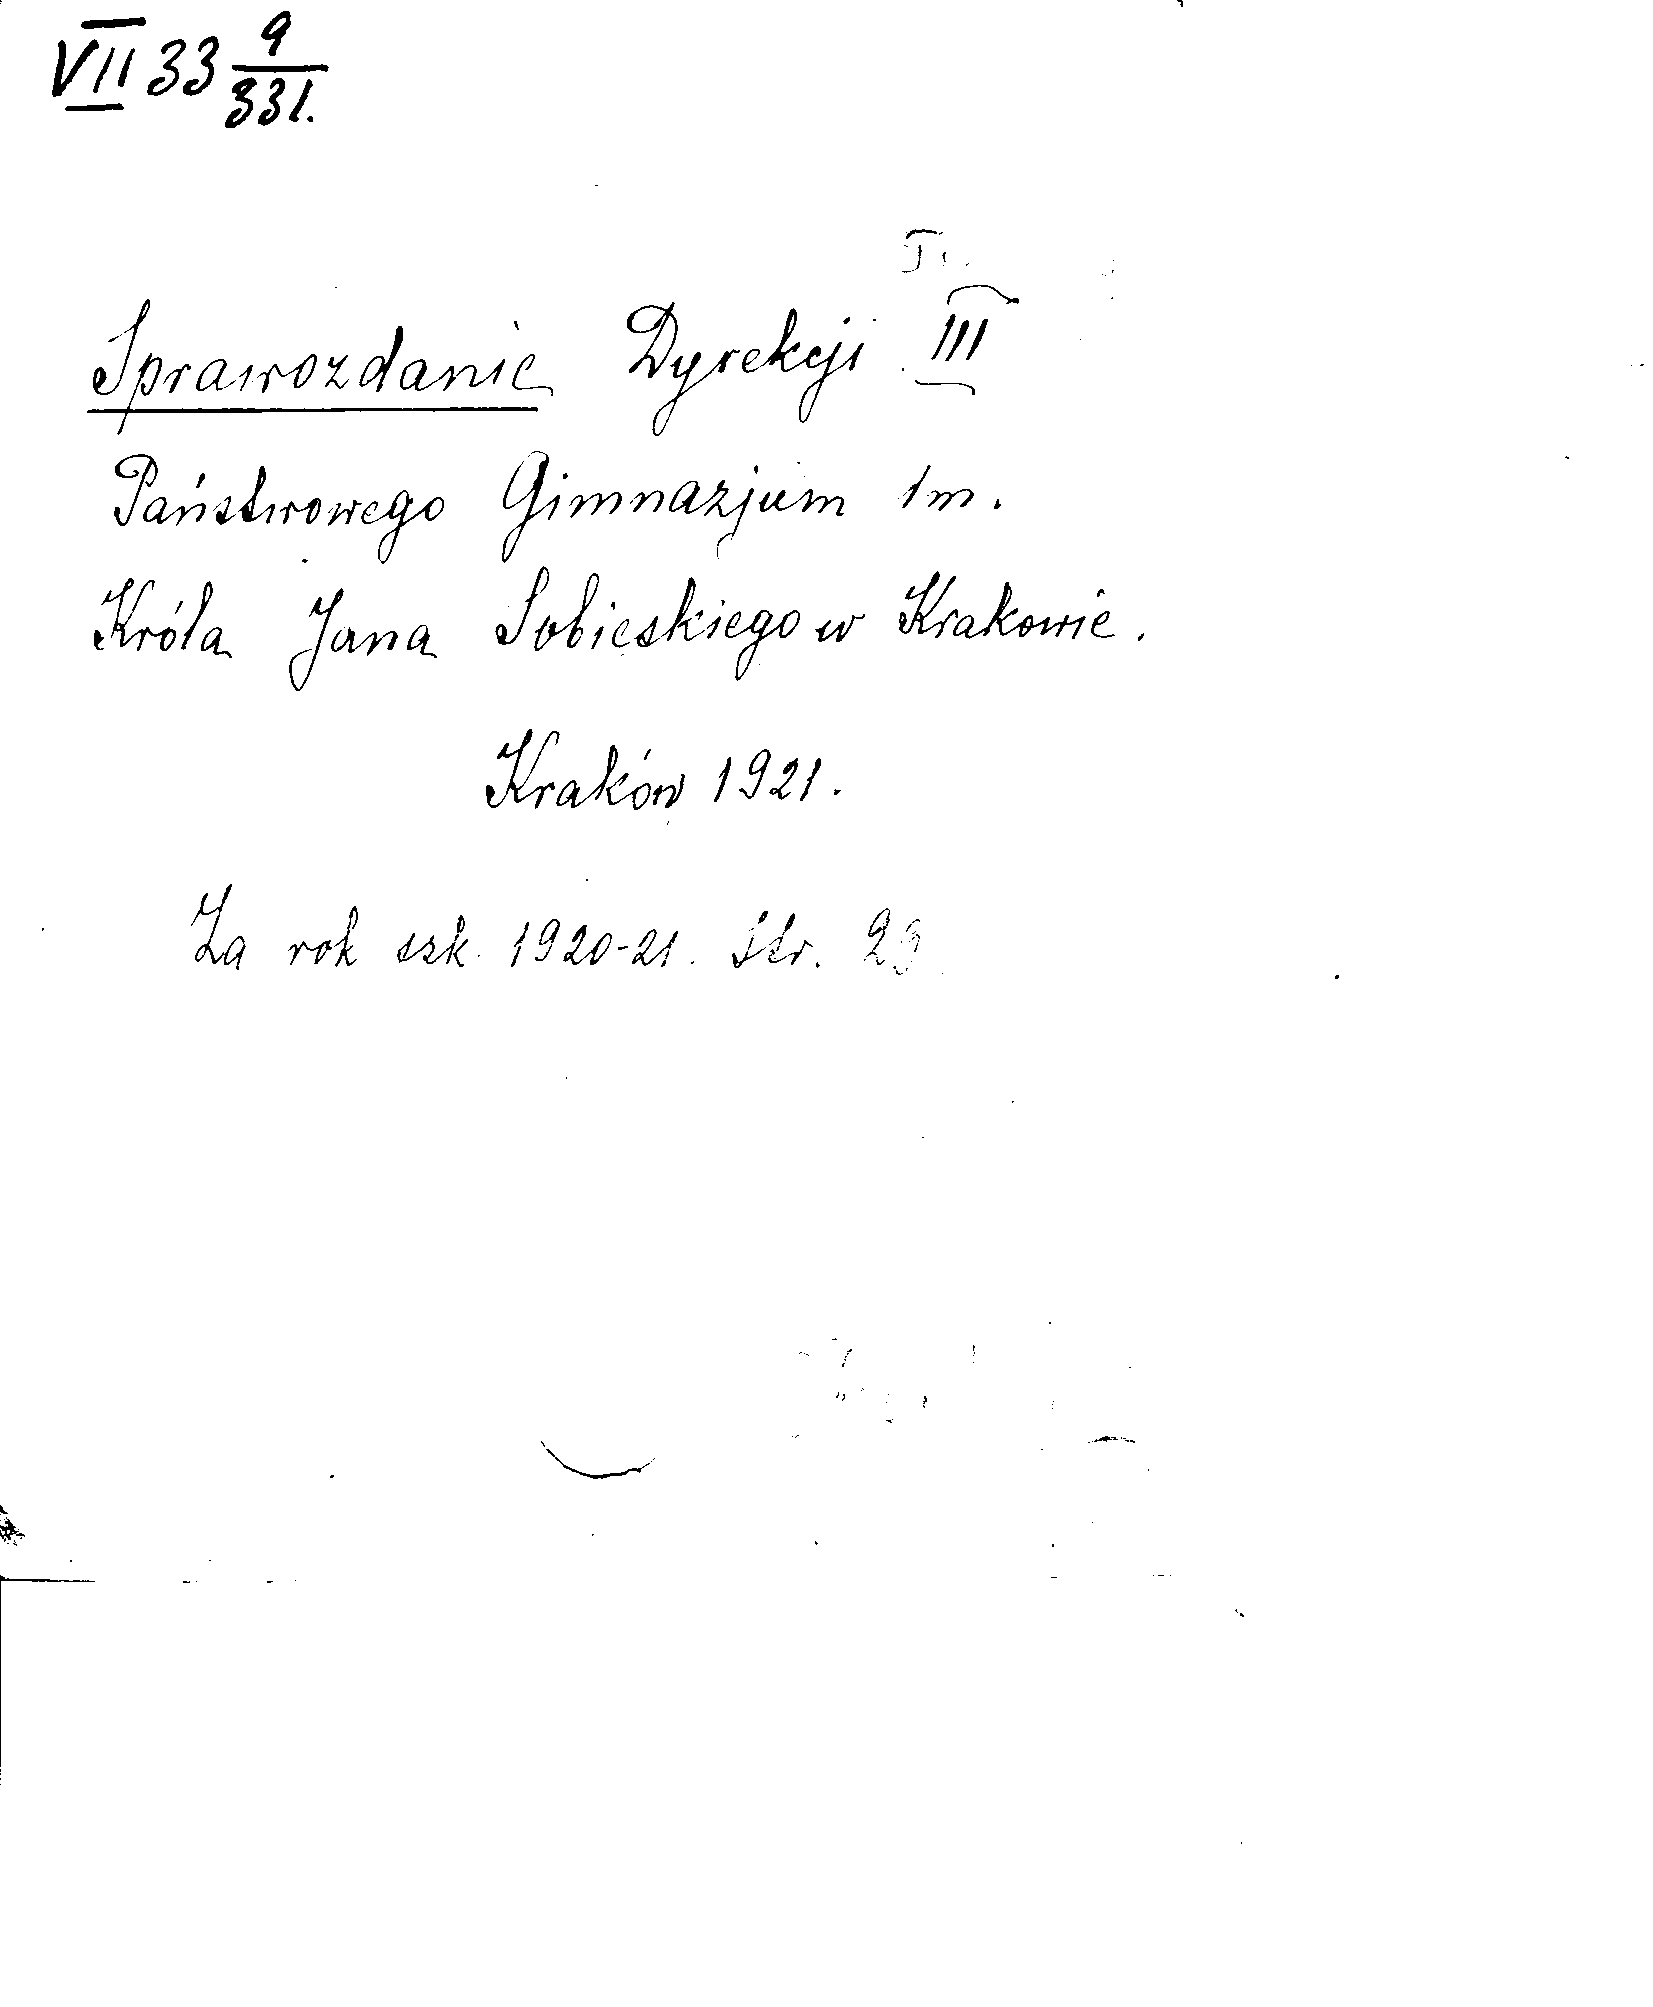 VII 33 9/331.
Sprawozdanie Dyrekcji III
Państwowego Gimnazjum im.
Króla Jana Sobieskiego w Krakowie.
Kraków 1921.
Za rok szk. 1920-21. Str.